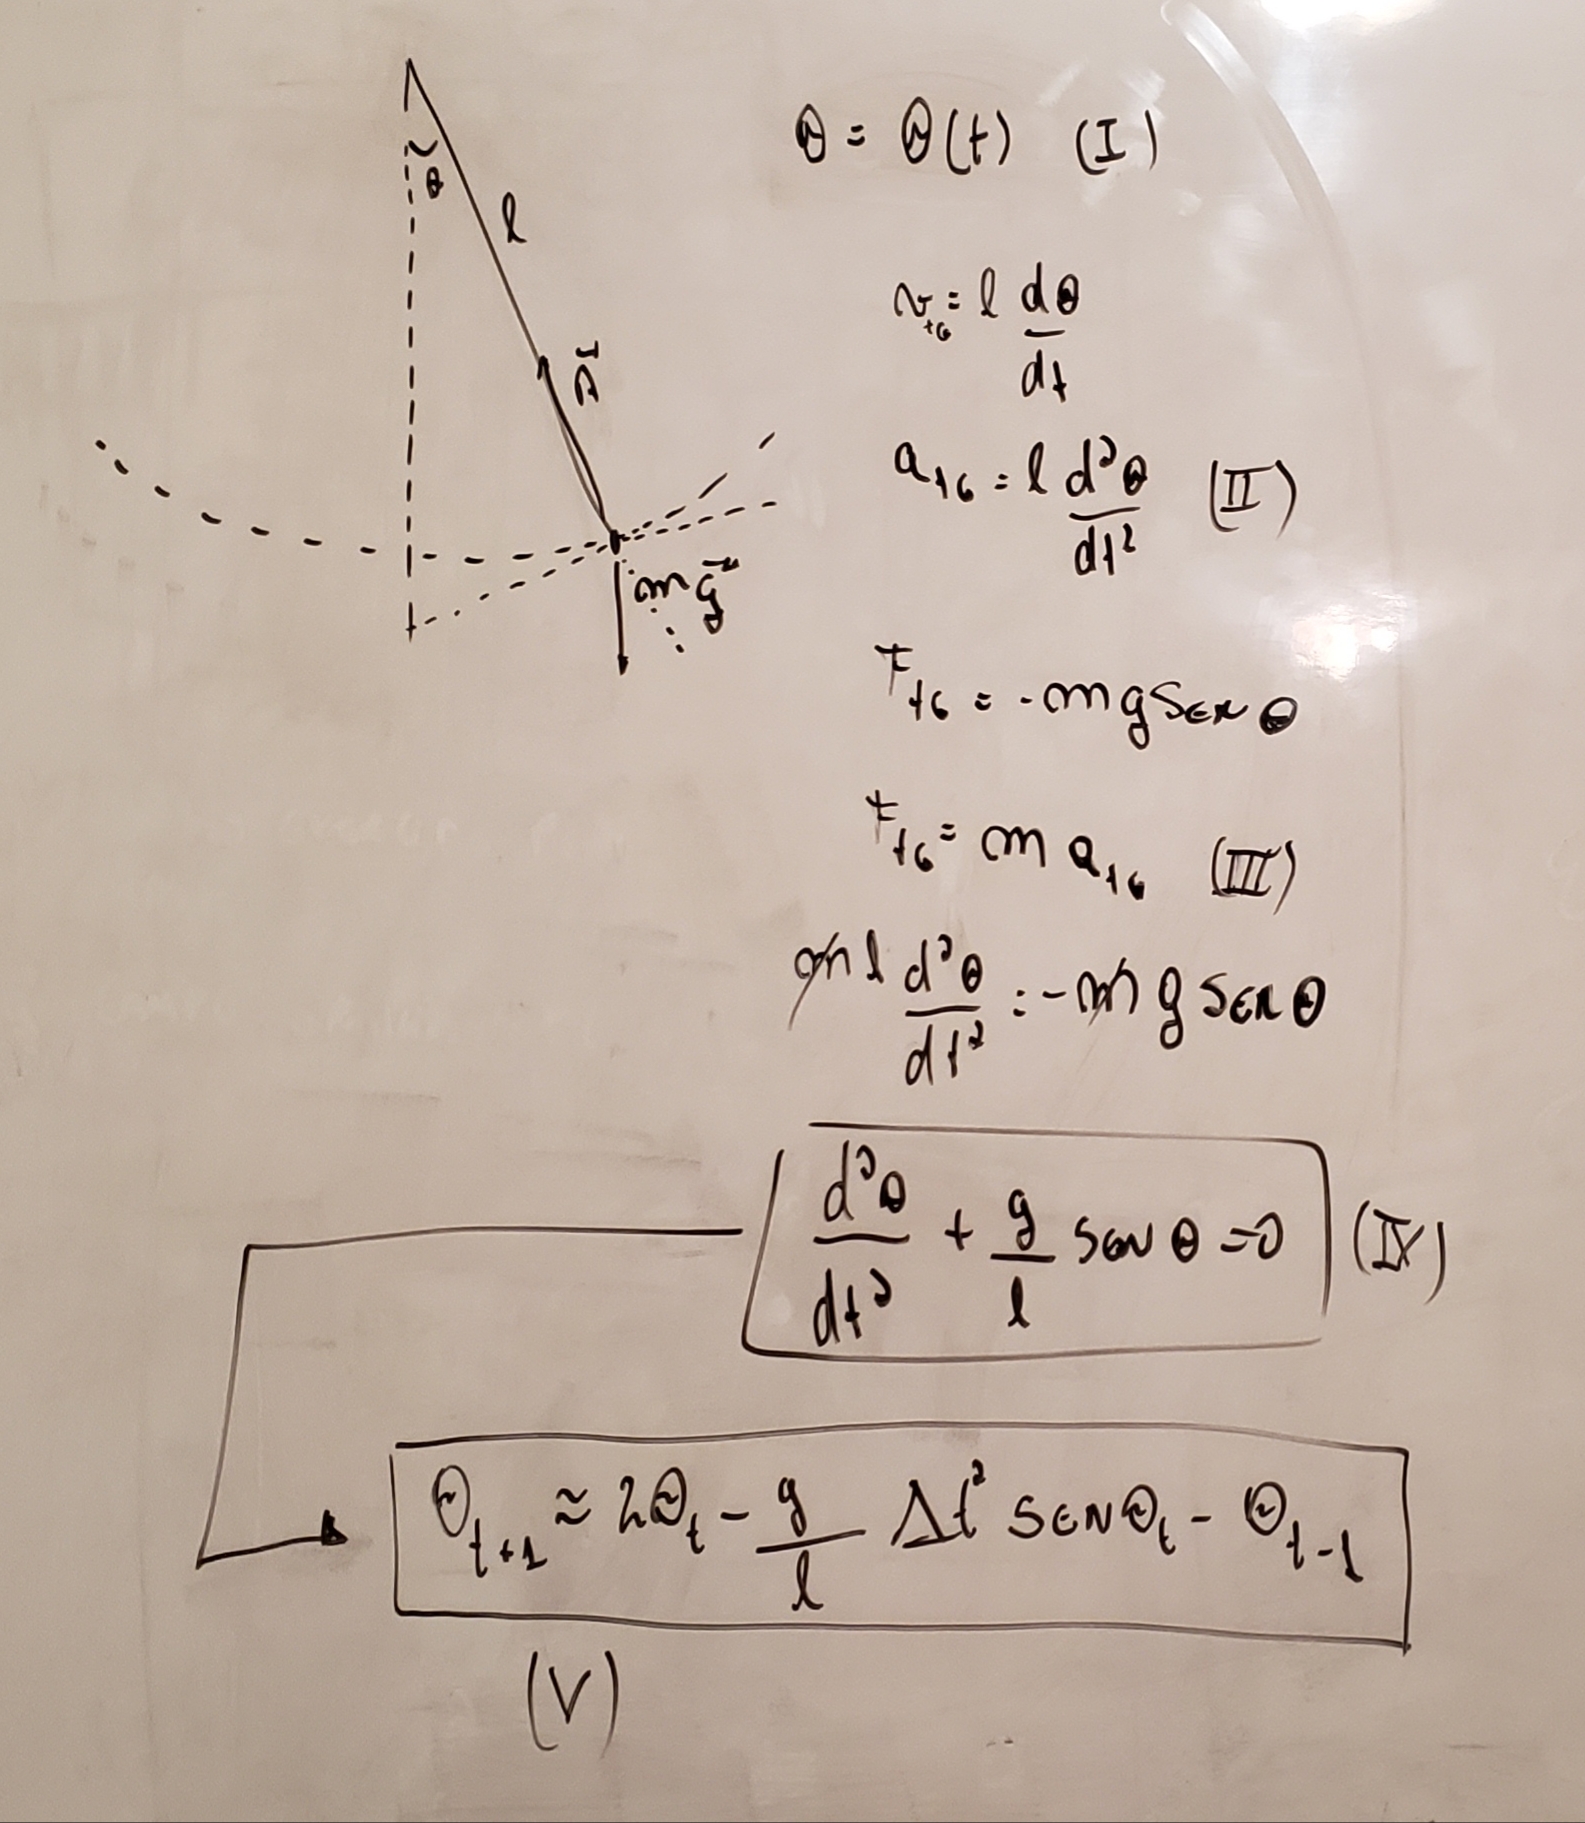 θ
l
T⃗
mg⃗
θ = θ(t) (I)
v_tg = l dθ/dt
a_tg = l d²θ/dt² (II)
F_tg = -mg SEN θ
F_tg = m a_tg (III)
m l d²θ/dt² = -m g SEN θ
d²θ/dt² + g/l SEN θ = 0 (IV)
θ_t+1 ≈ 2θ_t - g/l Δt² SEN θ_t - θ_t-1
(V)